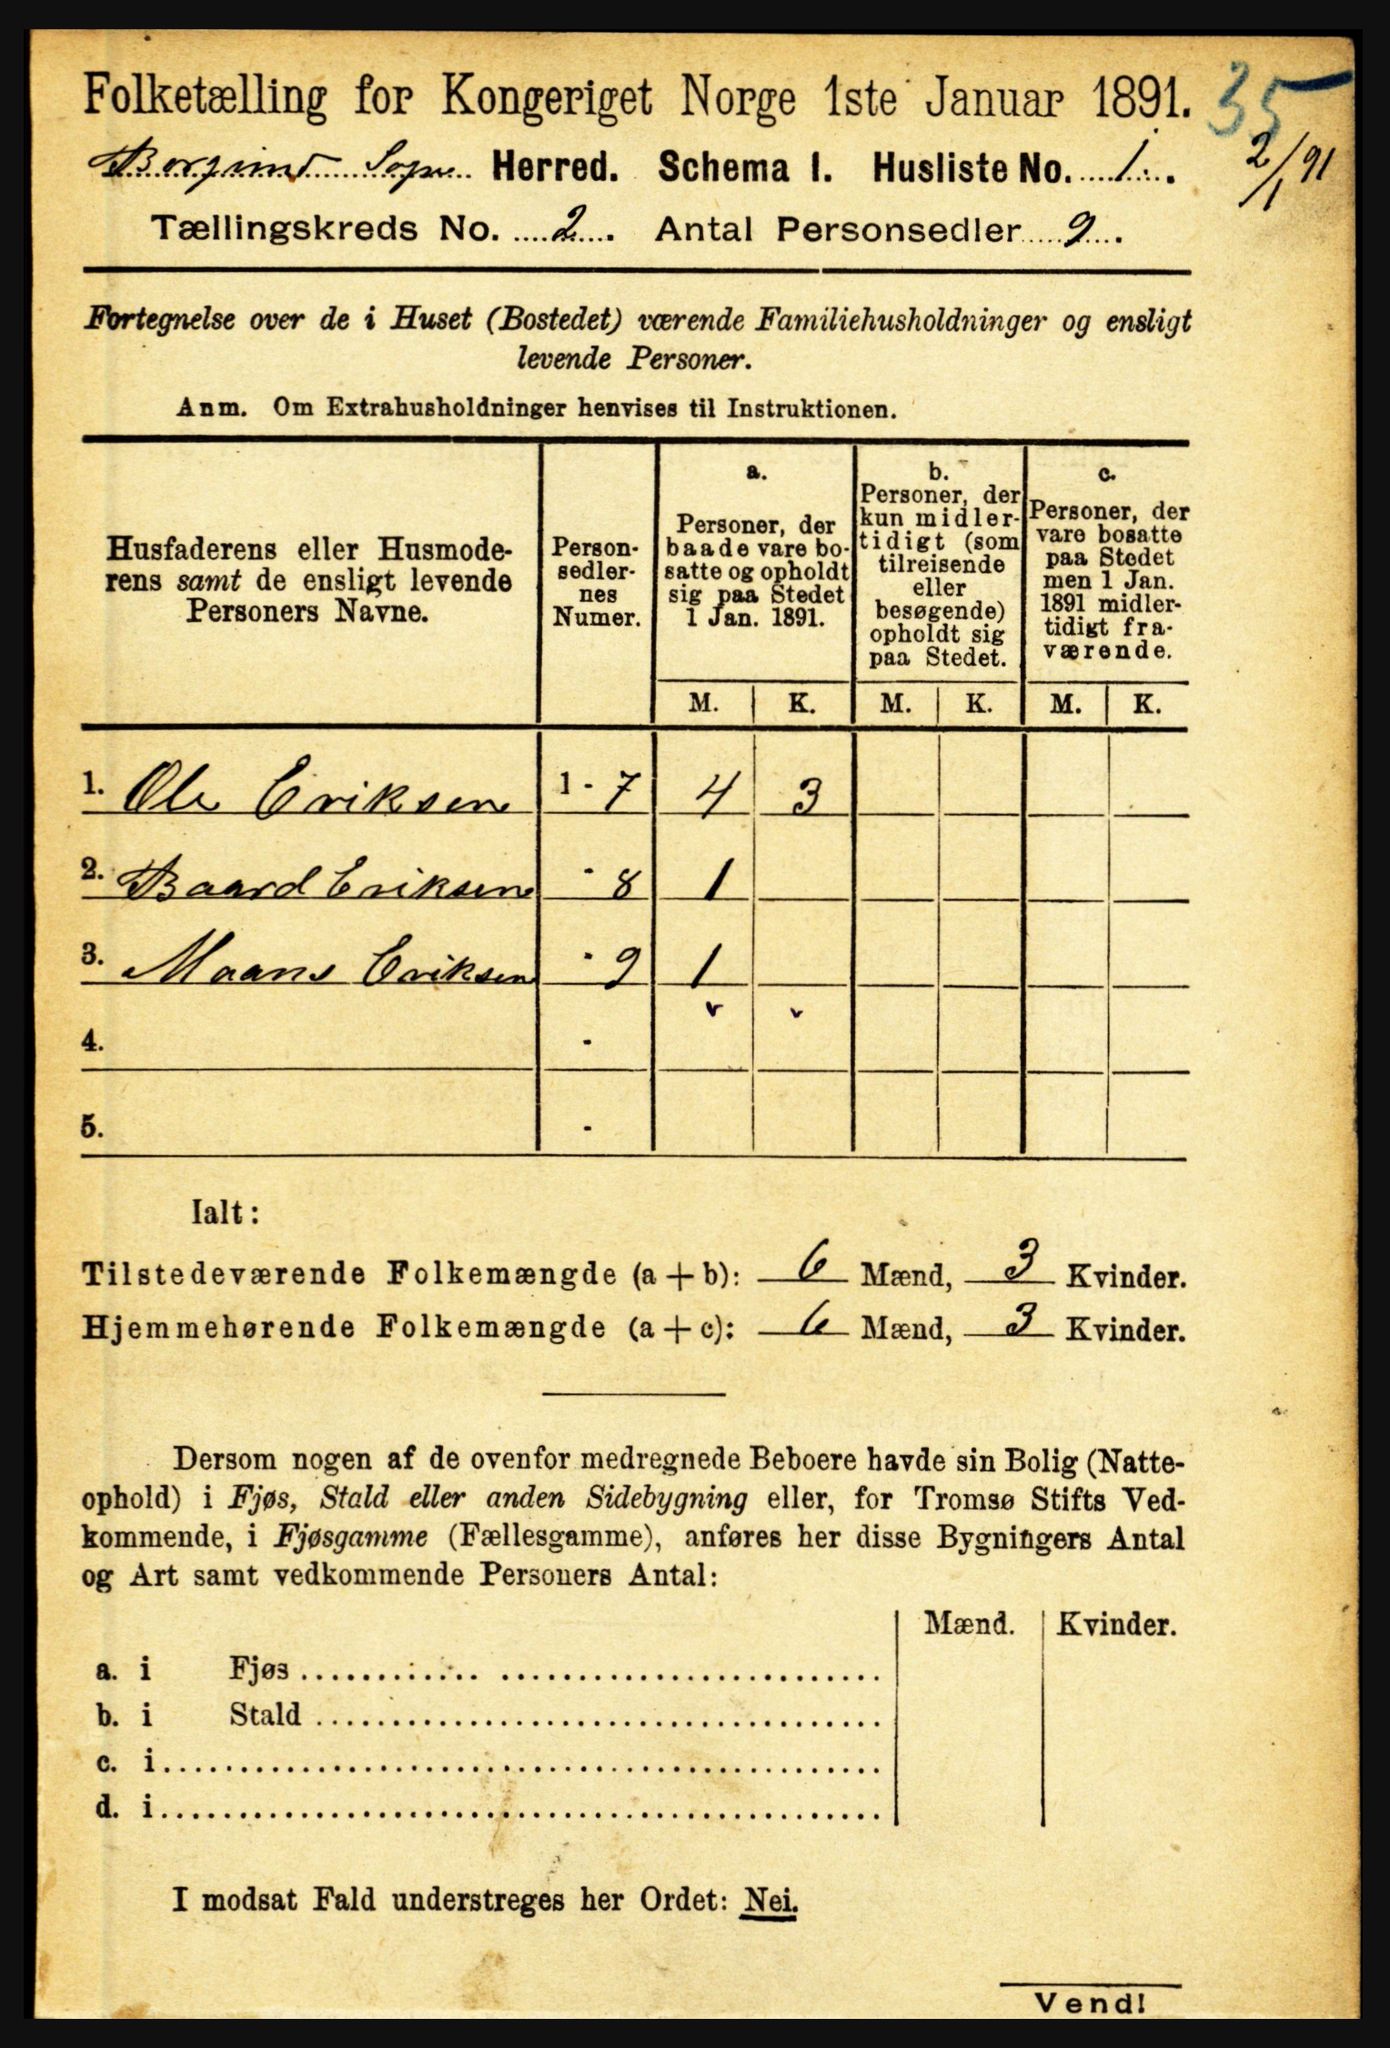 Folketælling for Kongeriget Norge 1ste Januar 1891.
35
Borgund Sogn Herred. Schema I. Husliste No. 1.
2/1 91
Tællingskreds No. 2. Antal Personsedler 9.
Fortegnelse over de i Huset (Bostedet) værende Familiehusholdninger og ensligt
levende Personer.
Anm. Om Extrahusholdninger henvises til Instruktionen.
Husfaderens eller Husmode-
rens samt de ensligt levende
Personers Navne.
Person-
sedler-
nes
Numer.
a.
Personer, der
baade vare bo-
satte og opholdt
sig paa Stedet
1 Jan. 1891.
b.
Personer, der
kun midler-
tidigt (som
tilreisende
eller
besøgende)
opholdt sig
paa Stedet.
c.
Personer, der
vare bosatte
paa Stedet
men 1 Jan.
1891 midler-
tidigt fra-
værende.
M. K. M. K. M. K.
1. Ole Eriksen 1 - 7 4 3
2. Baard Eriksen - 8 1
3. Maans Eriksen - 9 1
4. -
5. -
Ialt:
Tilstedeværende Folkemængde (a + b): 6 Mænd, 3 Kvinder.
Hjemmehørende Folkemængde (a + c): 6 Mænd, 3 Kvinder.
Dersom nogen af de ovenfor medregnede Beboere havde sin Bolig (Natte-
ophold) i Fjøs, Stald eller anden Sidebygning eller, for Tromsø Stifts Ved-
kommende, i Fjøsgamme (Fællesgamme), anføres her disse Bygningers Antal
og Art samt vedkommende Personers Antal:
Mænd. Kvinder.
a. i Fjøs
b. i Stald
c. i
d. i
I modsat Fald understreges her Ordet: Nei.
Vend!